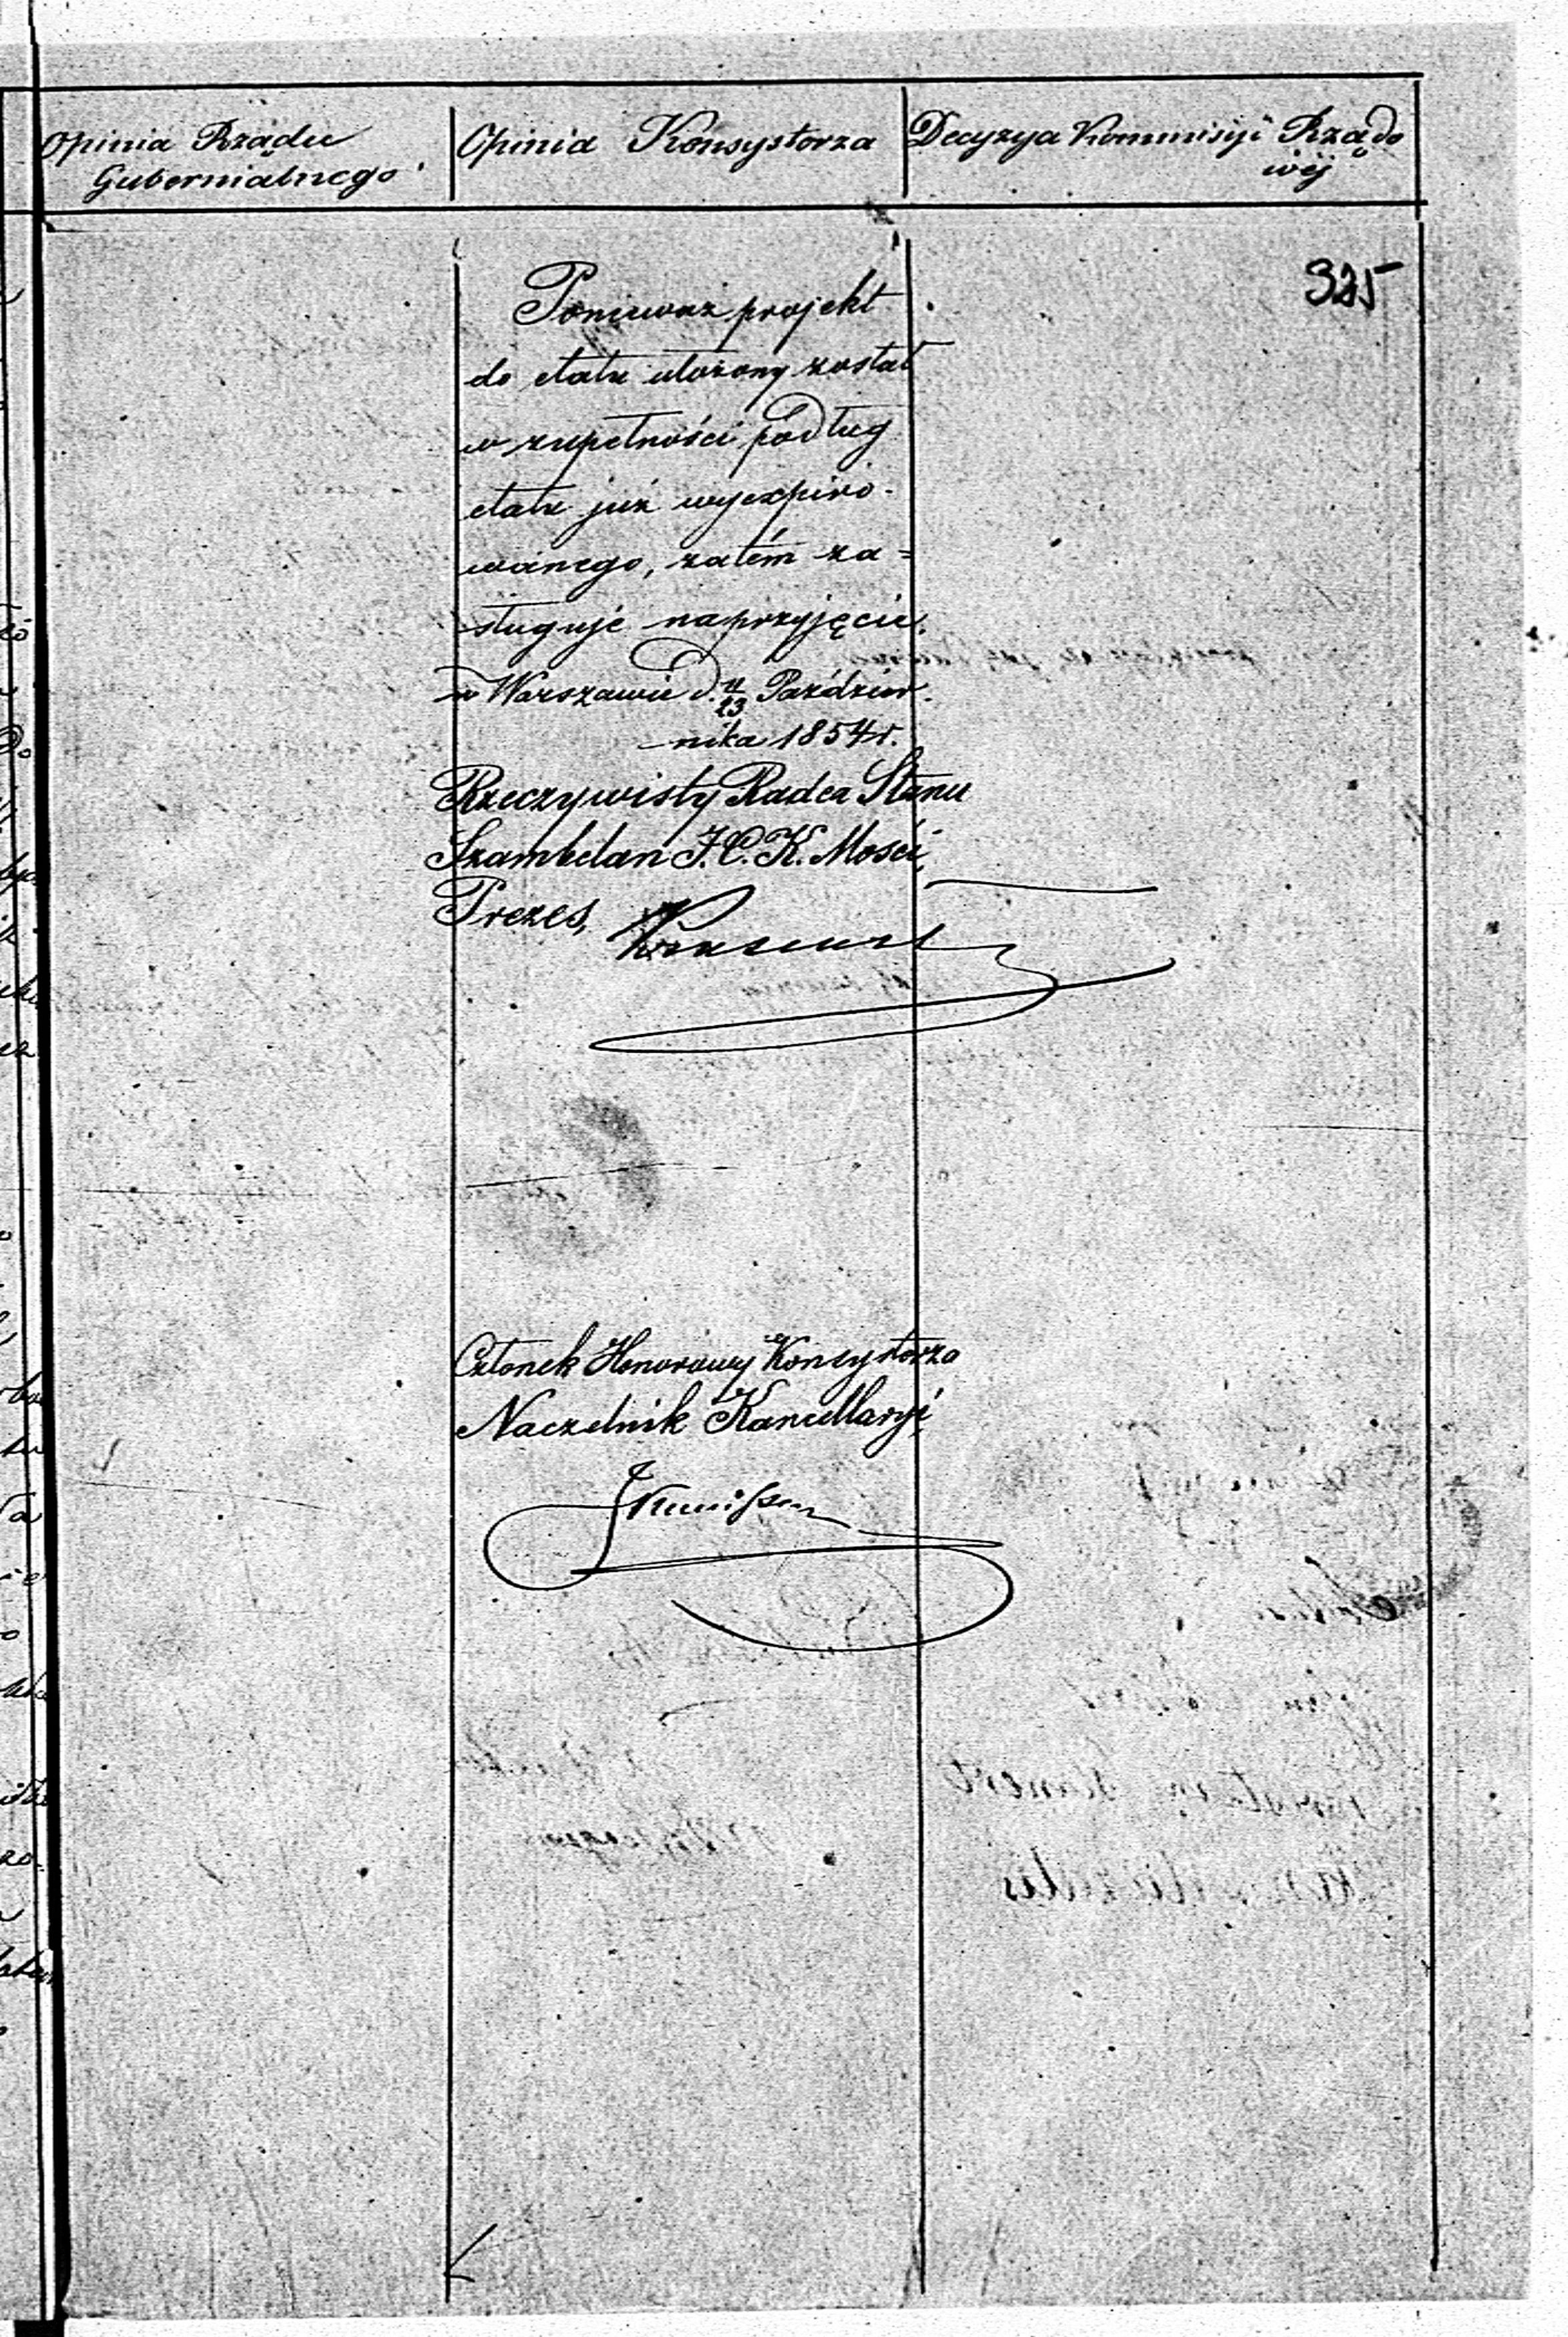 Opinia Rządu
Gubernialnego
Opinia Konsystorza
Decyzya Kommisyi Rządo
wéj
325
Ponieważ projekt
do etatu ułożony został
w zupełności podług
etatu już wyexpiro-
wanego, zatém za=
sługuje na przyjęcie.
w Warszawie d. 11/23 Paździer
nika 1854 r.
Rzeczywisty Radca Stanu
Szambelan J. C. K. Mości,
Prezes,
Członek Honorowy Konsystorza
Naczelnik Kancellaryi,